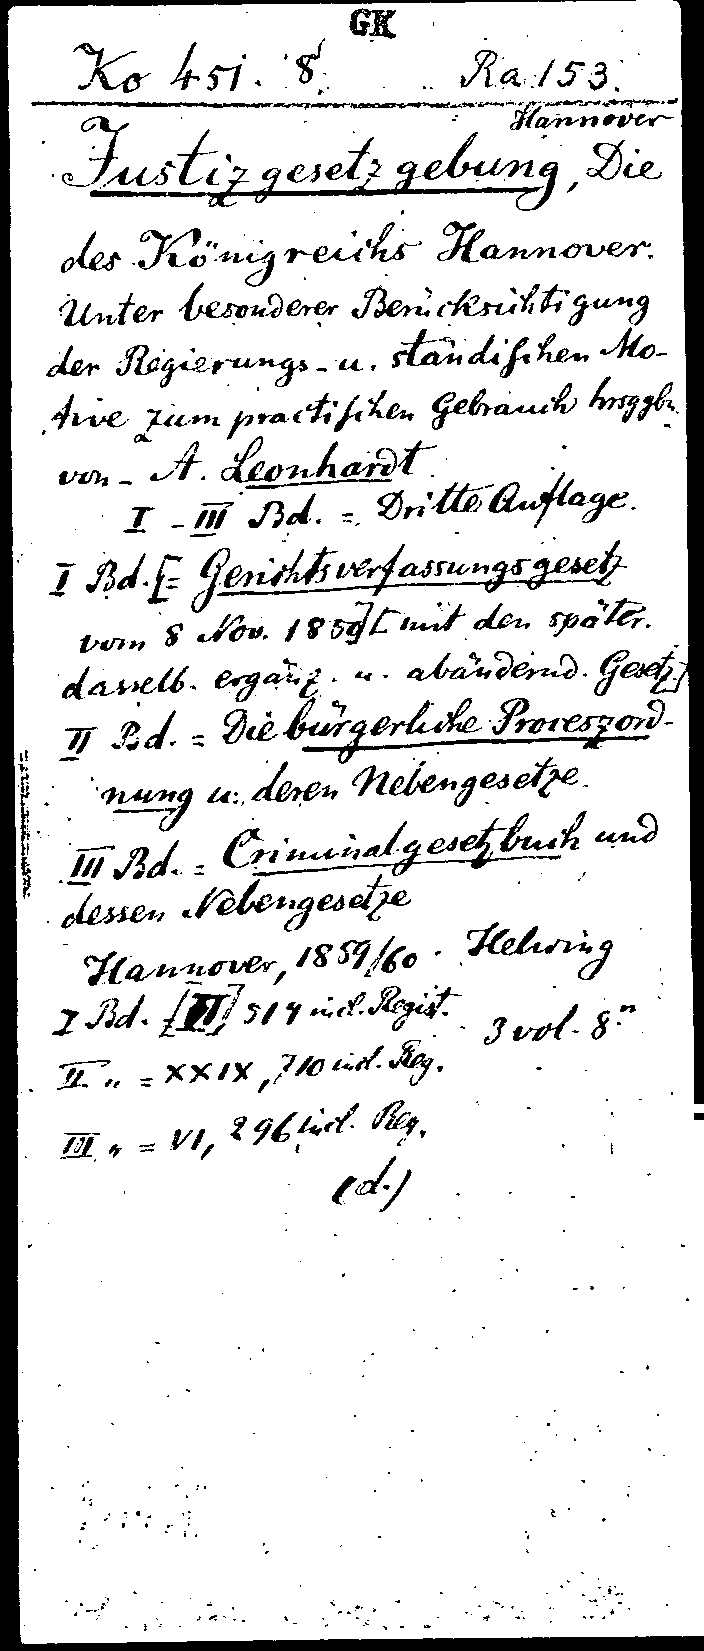 GK
Ko 451. 8. Ra 153.
Hannover
Justizgesetzgebung, Die
des Königreichs Hannover.
Unter besonderer Berücksichtigung
der Regierungs- u. ständischen Mo-
tive zum practischen Gebrauch hrsggbn.
von - A. Leonhardt
I - III Bd. = Dritte Auflage.
I Bd. [= Gerichtsverfassungsgesetz
vom 8 Nov. 1850] [mit den später.
dasselb. ergänz. u. abändernd. Gesetz.]
II Bd. = Die bürgerliche Proceszord-
nung u. deren Nebengesetze.
III Bd. = Criminalgesetzbuch und
dessen Nebengesetze
Hannover, 1859/60. Helwing
I Bd. [VI,] 514 incl. Regist. 3 vol. 8.º
II " = XXIX, 710 incl. Reg.
III " = VI, 296 incl. Reg.
(d.)